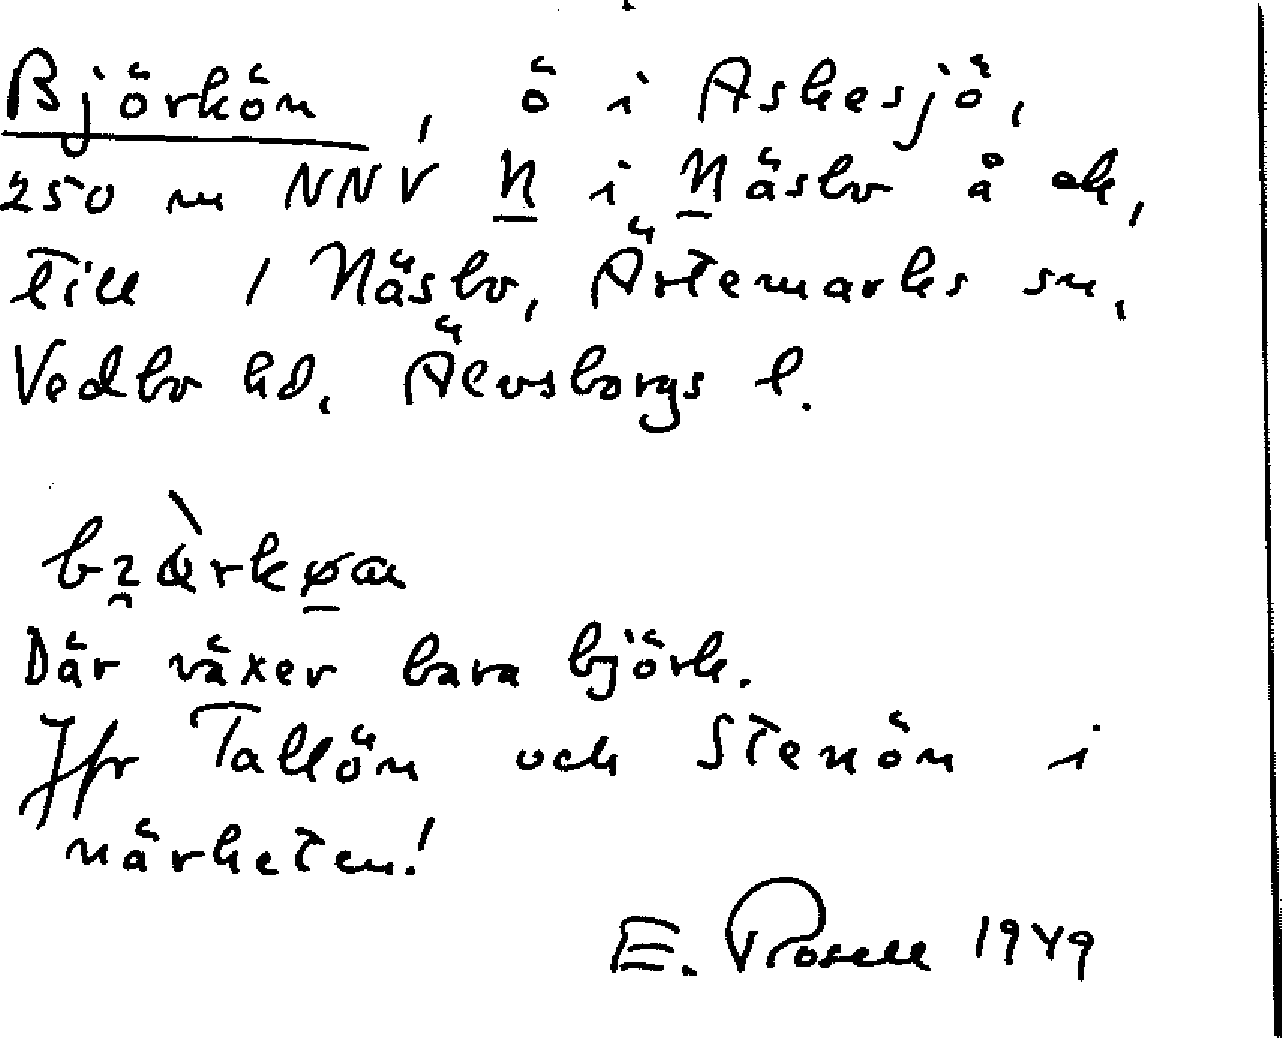 Björkön, ö i Askesjö,
250 m NNV N i Näsbo å ek,
till 1 Näsbo, Ärtemarks sn,
Vedbo hd, Älvsborgs l.
Där växer bara björk.
Jfr Tallön och Stenön i
närheten!
E. Rosell 1949